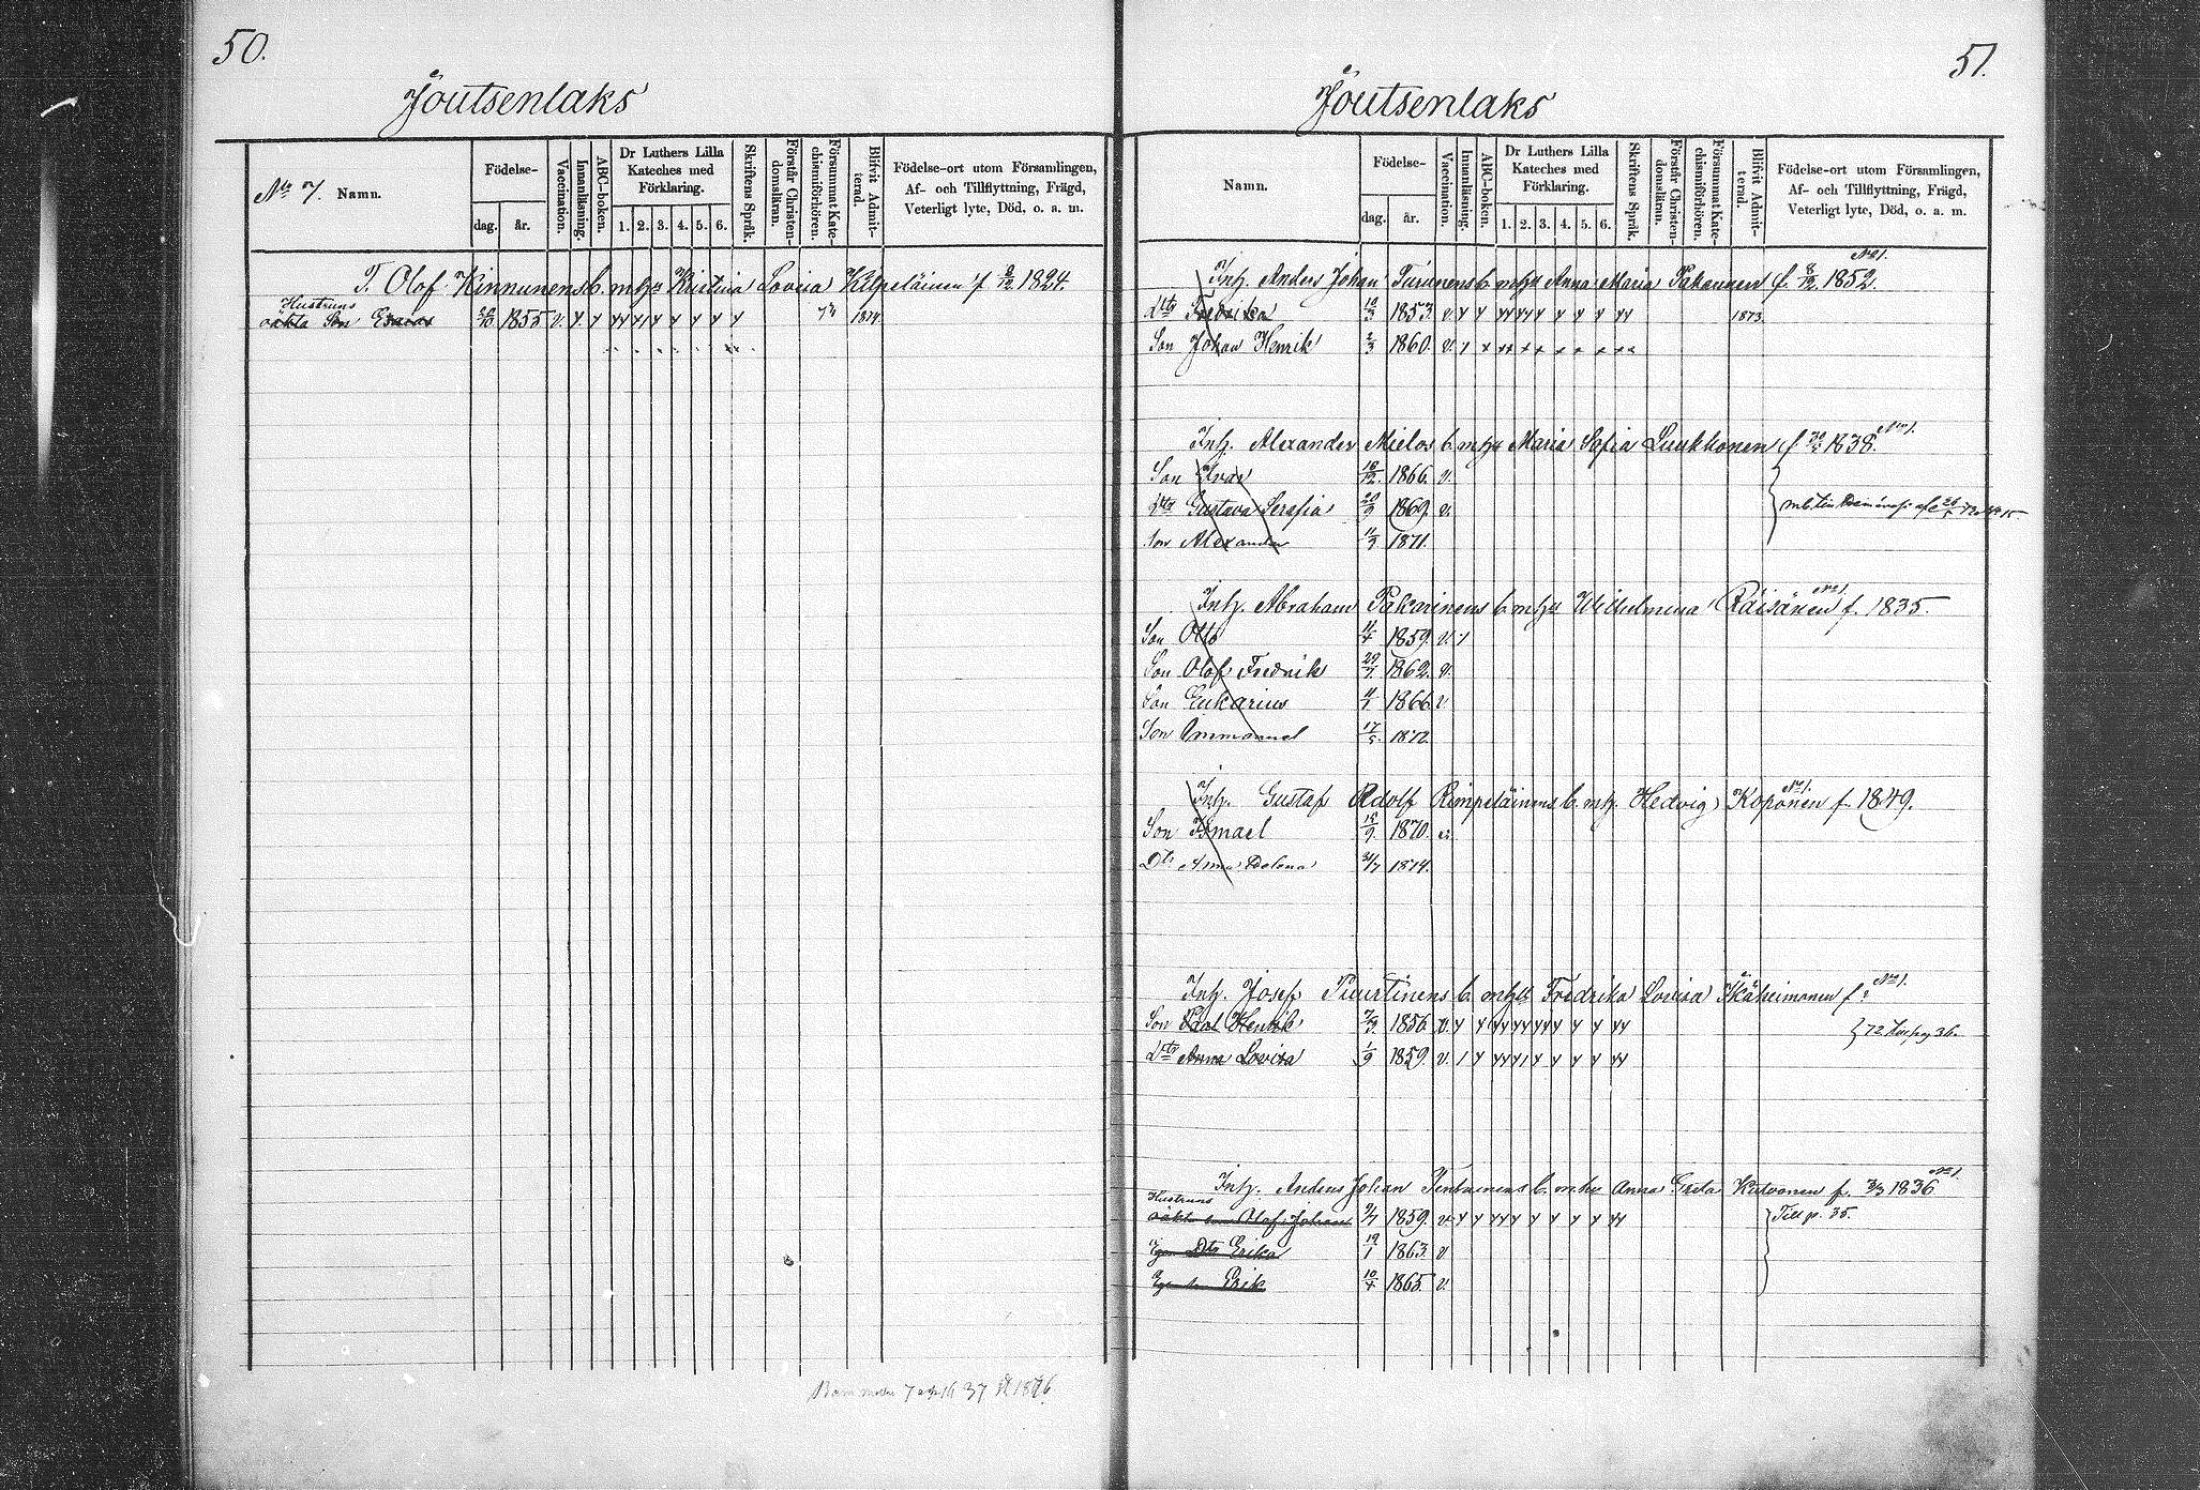 50.
Joutsenlaks
No 7. Namn.
Födelse-
dag. år.
Vaccination.
Innanläsning.
ABC-boken.
Dr Luthers Lilla
Kateches med
Förklaring.
1. 2. 3. 4. 5. 6.
Skriftens Språk.
Förstår Christen-
domsläran.
Försummat Kate-
chismiförhören.
Blifvit Admit-
terad.
Födelse-ort utom Församlingen,
Af- och Tillflyttning, Frägd,
Veterligt lyte, Död, o. a. m.
T. Olof Kinnunens b. m. Kristina Lovisa Kilpeläinen f 1824.
Hustruns
oäkta Son 1855 v. 73 1874
7 37 1876
51.
Joutsenlaks
Namn.
Födelse-
dag. år.
Vaccination.
Innanläsning.
ABC-boken.
Dr Luthers Lilla
Kateches med
Förklaring.
1. 2. 3. 4. 5. 6.
Skriftens Språk.
Förstår Christen-
domsläran.
Försummat Kate-
chismiförhören.
Blifvit Admit-
terad.
Födelse-ort utom Församlingen,
Af- och Tillflyttning, Frägd,
Veterligt lyte, Död, o. a. m.
No 1.
Inh. Anders Johan Turunens b. m. Anna Maria Pakarinen f. 8/12 1852.
Dtr Fredrika 10/3 1853. v. 1873.
Son Johan Henrik 2/3 1860. v.
No 1.
Inh. Alexander Mielos b. m. Maria Sofia Luukkonen f. 1838.
Son Ivar 16/12 1866. v.
Dtr Gustava Serafia 20/9 1869. v.
Son Alexander 11/9 1871.
No 1.
Inh. Abraham Pakarinens b. m. Wilhelmina Räisänen f. 1835.
Son Otto 11/4 1859. v.
Son Olof Fredrik 29/7 1862. v.
Son Eukarius 1866 v
Son Immanuel 17/5 1872
No 1.
Inh. Gustaf Adolf Rimpeläinens b. m. Hedvig Koponen f. 1849.
Son Ismael 15/9 1870. v.
Dtr Anna Helena 31/7 1874.
No 1.
Inh. Josef Puurtinens b. m. Fredrika Lovisa Ikäheimonen f ?
Son Paul Henrik 7/3 1856. v.
72 pag 36.
Dtr Anna Lovisa 1/9 1859. v.
No 1.
Inh. Anders Johan b. m. Anna Greta Kutvonen f. 3/3 1836
Hustruns
oäkta son Olof Johan 9/7 1859. v. Till p. 35.
Egen Dtr Erika 19/1 1863. v
Egen Son Erik 10/4 1865. v.